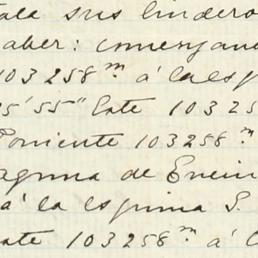 tala sus lindero
aber: comenzand
103258.m á la esp
25'55" Este 10325
Poniente 103258.m
aguna de Enein
á la espina S.
ste 103258.m á l